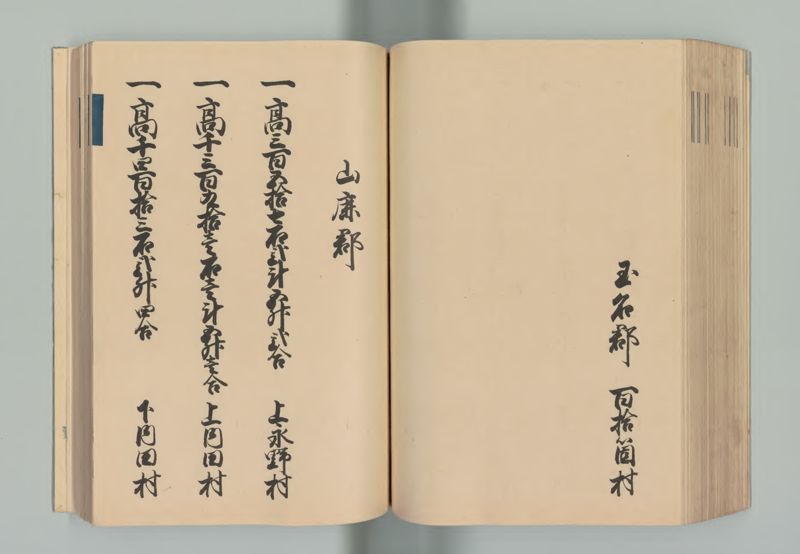 玉名郡 百拾箇村
山鹿郡
一高三百五拾七石弐斗五升弐合 上永野村
一高千三百九拾壱石壱斗五升壱合 上内田村
一高千四百拾三石弐升四合 下内田村